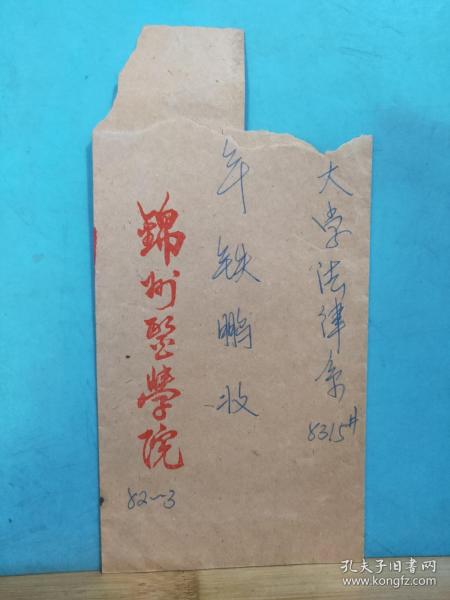 大学法律系
8315#
年铁鹏收
錦州醫學院
82-3
孔夫子旧书网
www.kongfz.com